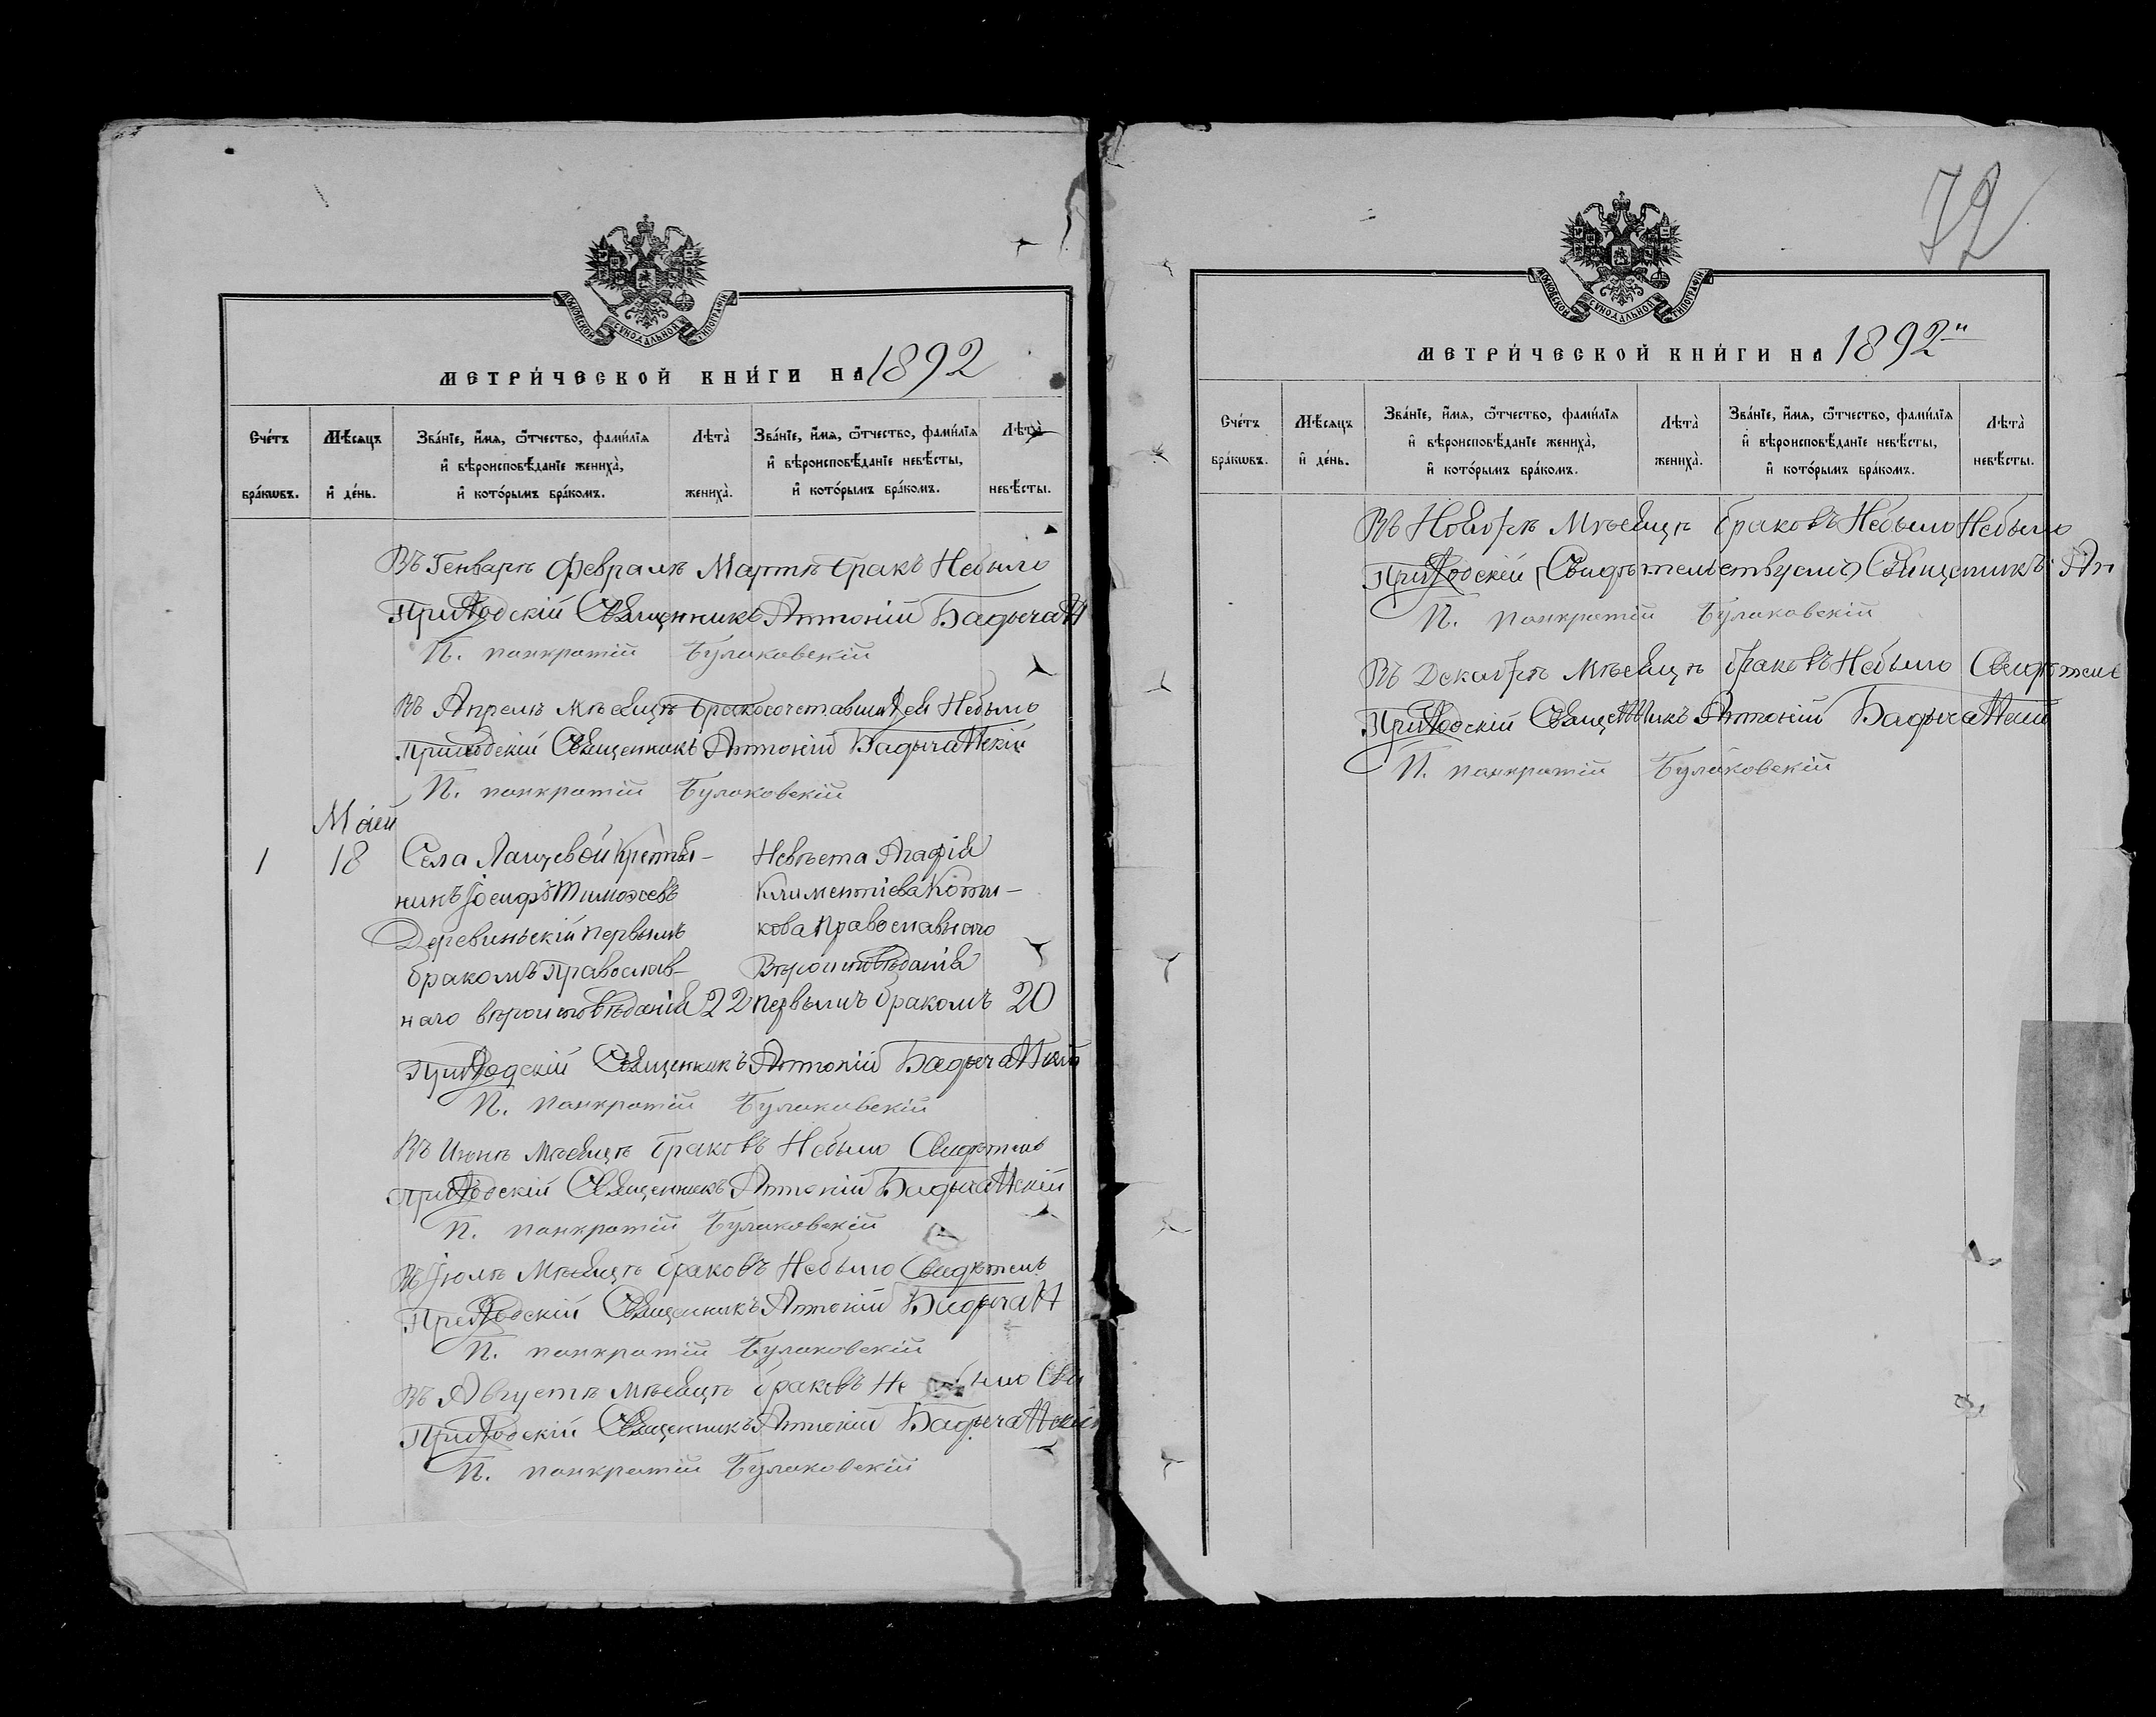 МОСКОВСКОЙ СѴНОДАЛЬНОЙ ТИПОГРАФІИ
МЕТРИ́ЧЕСКОЙ КНИ́ГИ НА 1892
Сче́тъ бра́кѡвъ.
Мѣ́сяцъ и҆ де́нь.
Зва́нїе, и҆́мѧ, ѻ҆́тчество, фамѝлїѧ и҆ вѣроисповѣ́данїе жениха̀, и҆ кото́рымъ бра́комъ.
Лѣта̀ жениха̀.
Зва́нїе, и҆́мѧ, ѻ҆́тчество, фамѝлїѧ и҆ вѣроисповѣ́данїе невѣ́сты, и҆ кото́рымъ бра́комъ.
Лѣта̀ невѣ́сты.
Въ Генварѣ Февралѣ Мартѣ бракъ Небыло
Приходскій Священникъ Антоній Бадычан
П. панкратій Булаковскій
Въ Апрелѣ мѣсяцѣ бракосочетавшихся Небыло
Приходскій Священникъ Антоній Бадычанскій
П. панкратій Булаковскій
Маій
1 18 Села Лащевой Крестья- Невѣста Агафія
никъ Іосифъ Тимоѳеевъ Климентіева
Деревинскій первымъ Православнаго
бракомъ Православ- Вѣроисповѣданія
наго вѣроисповѣданія 22 первымъ бракомъ 20
Приходскій Священникъ Антоній Бадычанскій
П. панкратій Булаковскій
Въ Июнѣ мѣсяцѣ браковъ Небыло Свидѣтель
Приходскій Священникъ Антоній Бадычанскій
П. панкратій Булаковскій
Въ Іюлѣ Мѣсяцѣ браковъ Небыло Свидѣтель
Приходскій Священникъ Антоній Бадычан
П. панкратій Булаковскій
Въ Августѣ мѣсяцѣ браковъ Не было Сви
Приходскій Священникъ Антоній Бадычанскій
П. панкратій Булаковскій
72
МОСКОВСКОЙ СѴНОДАЛЬНОЙ ТИПОГРАФІИ
МЕТРИ́ЧЕСКОЙ КНИ́ГИ НА 1892
Сче́тъ бра́кѡвъ.
Мѣ́сяцъ и҆ де́нь.
Зва́нїе, и҆́мѧ, ѻ҆́тчество, фамѝлїѧ и҆ вѣроисповѣ́данїе жениха̀, и҆ кото́рымъ бра́комъ.
Лѣта̀ жениха̀.
Зва́нїе, и҆́мѧ, ѻ҆́тчество, фамѝлїѧ и҆ вѣроисповѣ́данїе невѣ́сты, и҆ кото́рымъ бра́комъ.
Лѣта̀ невѣ́сты.
Въ Ноябрѣ Мѣсяцѣ браковъ Небыло Небыло
Приходскій Священикъ Ан
П. панкратій Булаковскій
Въ Декабрѣ Мѣсяцѣ браковъ Небыло Свидѣтель
Приходскій Священникъ Антоній Бадычанскій
П. панкратій Булаковскій